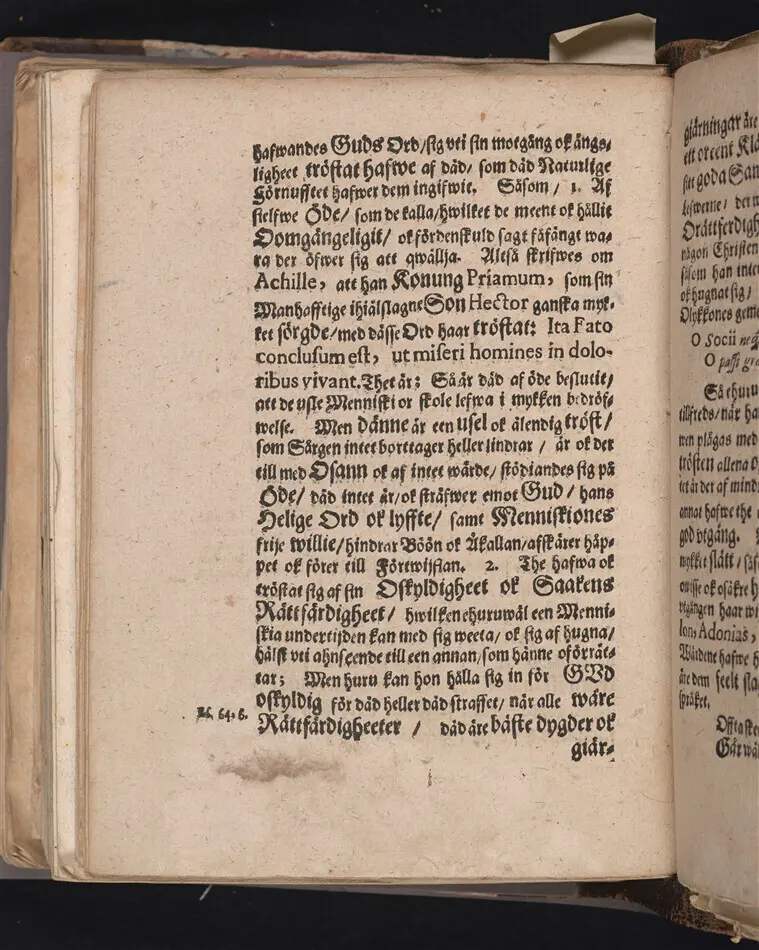 hafwandes Guds Ord/ sig vti sin motgång ok ängs-
ligheet tröstat hafwe af dåd/ som dåd Naturlige
Förnufftet hafwer dem ingifwit. Såsom/ 1. Af
sielfwe Öde/ som de kalla/ hwilket de meent ok hållit
Oomgängeligit/ ok fördenskuld sagt fåfängt wa-
ra der öfwer sig att qwällja. Altså skrifwes om
Achille, att han Konung Priamum, som sin
Manhafftige ihiälslagne Son Hector ganska myk-
ket sörgde/ med dässe Ord haar tröstat: Ita Fato
conclusum est, ut miseri homines in dolo-
ribus vivant. Thet är; Så är dåd af öde beslutit/
att de usle Menniskior skole lefwa i mykken bedröf-
welse. Men dänne är een usel ok älendig tröst/
som Sårgen intet borttager heller lindrar/ är ok der
till med Osann ok af intet wärde/ stödiandes sig på
Öde/ dåd intet är/ ok sträfwer emot Gud/ hans
Helige Ord ok lyffte/ samt Menniskiones
frije willie/ hindrar Böön ok Åkallan/ afskärer håp-
pet ok förer till Förtwijflan. 2. The hafwa ok
tröstat sig af sin Oskyldigheet ok Saakens
Rättfärdigheet/ hwilken ehuruwäl een Menni-
skia undertijden kan med sig weeta/ ok sig af hugna/
hälst vti ahnseende till een annan/ som hänne oförrät-
tar; Men huru kan hon hålla sig in för GVd
oskyldig för dåd heller dåd straffet/ når alle wåre
Es. 64. 6.
Rättfärdigheeter / dåd äre bäste dygder ok
giär-
giärningar äre
ett oreent Klä
sitt goda Sam
lefwerne/ der
Orättferdigh
någon Christen
såsom han inte
ok hugnat sig/
Olykkones geme
O Socii neq
O passi gra
Så ehuru
tillfreds/ när ha
wen plägas med
trösten allena
itt är der af mind
annat hafwe the
god vtgång.
mykket slätt/ såf
owisse ok osäkre h
vtgången haar wi
lon, Adonias,
Wärdene hafwe h
äre dem feelt sla
språket.
Offta ske
Går wä